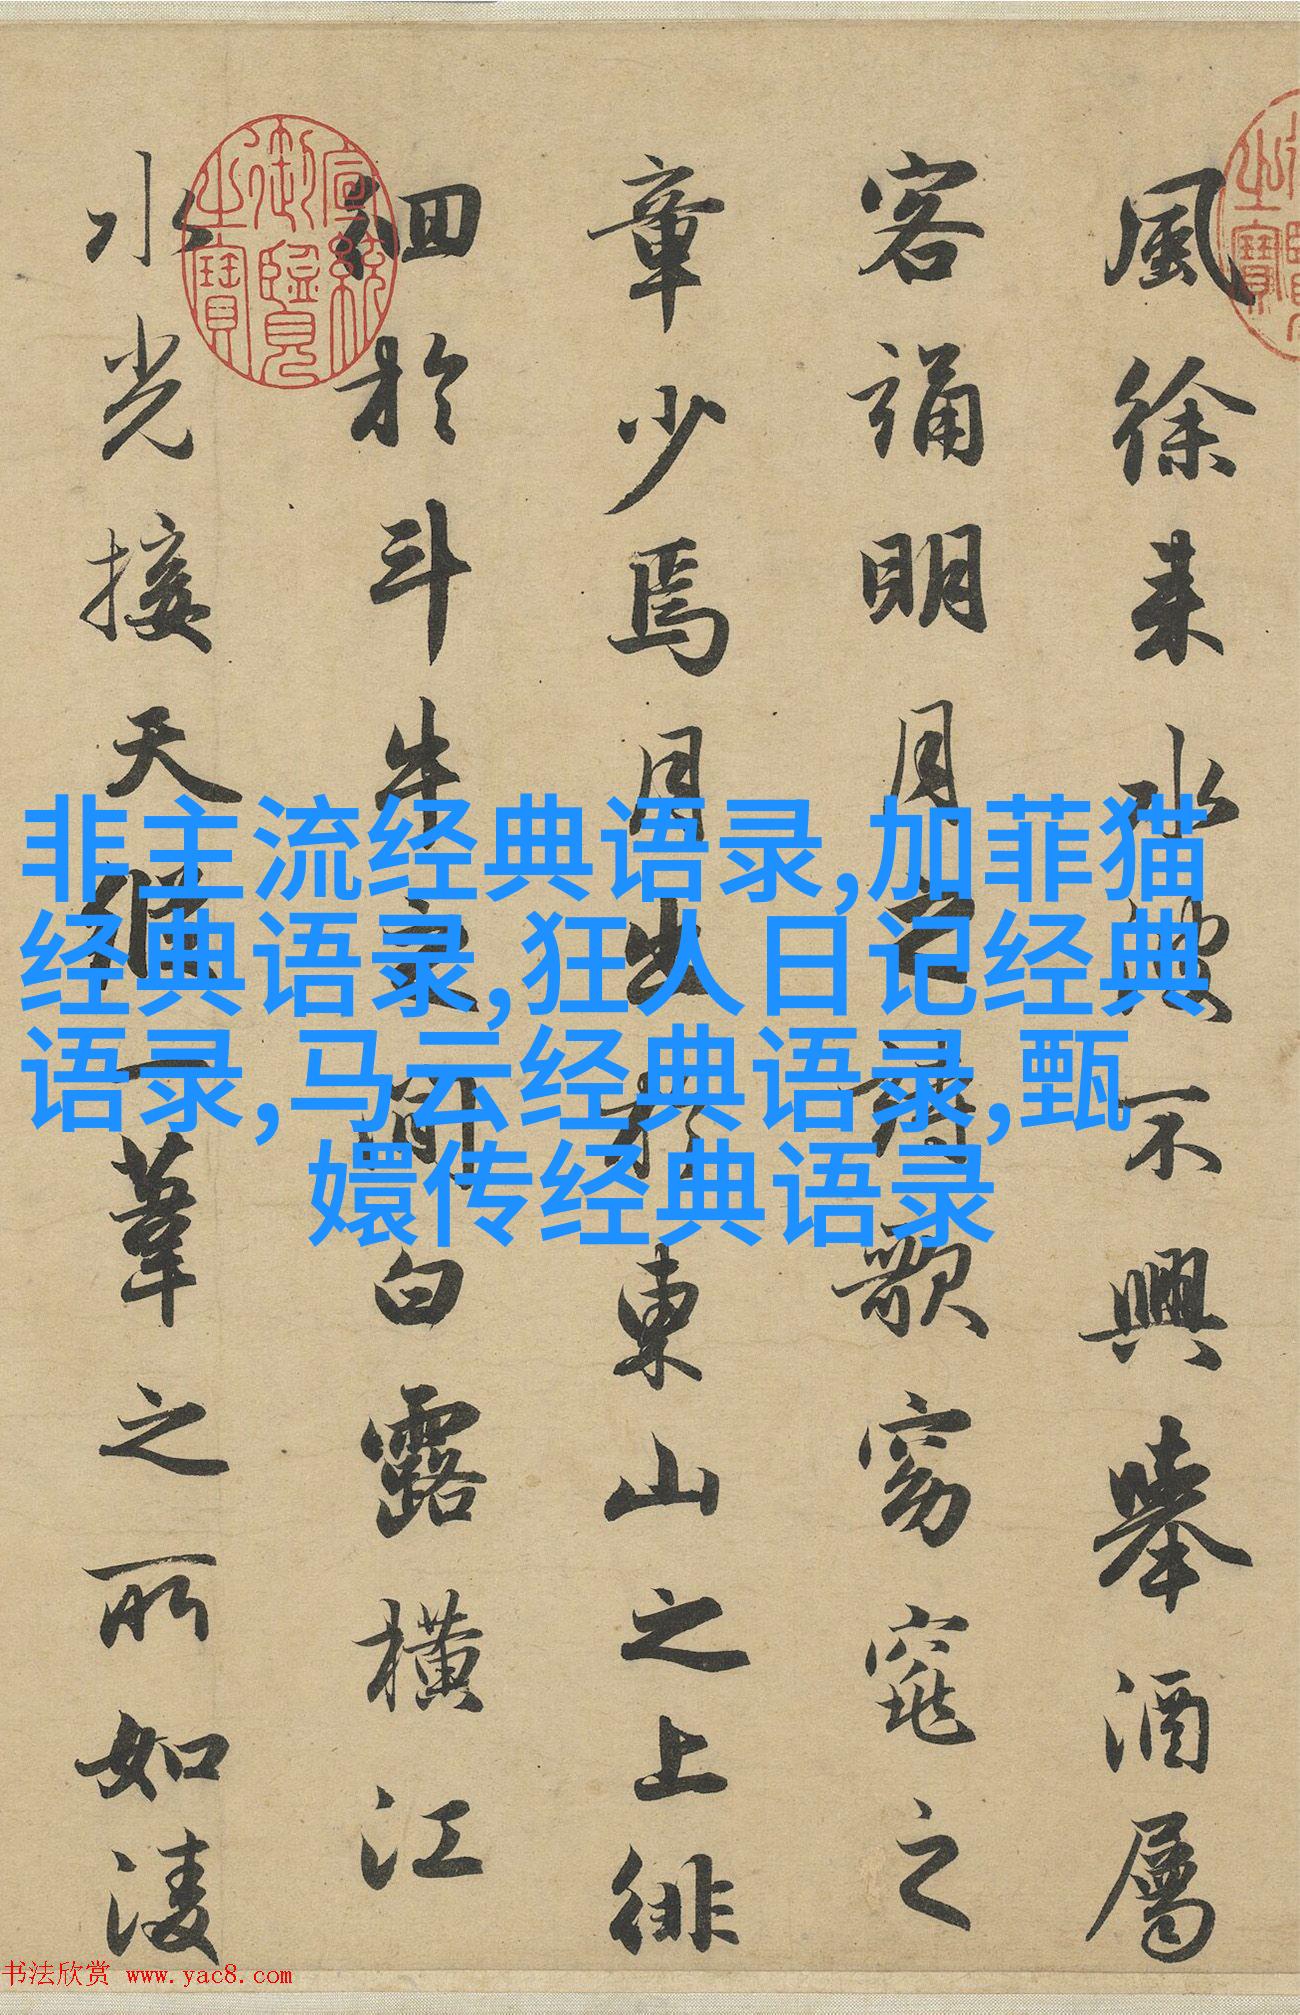 風徐来水波不興舉酒屬
客誦明月之詩歌窈窕之
章少焉月出於東山之上徘
徊於斗牛之間白露橫江
水光接天縱一葦之所如淩
宣統御覽之寶
非主流经典语录,加菲猫
经典语录,狂人日记经典
语录,马云经典语录,甄
嬛传经典语录
书法欣赏 www.yac8.com